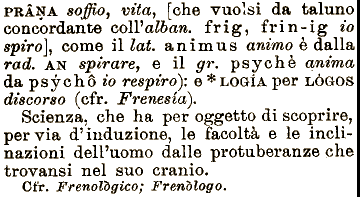 PRÂṆA soffio, vita, [che vuolsi da taluno
concordante coll'alban. frig, frin-ig io
spiro], come il lat. animus animo è dalla
rad. AN spirare, e il gr. psychè anima
da psýchô io respiro): e *LOGÍA per LÓGOS
discorso (cfr. Frenesía).
Scienza, che ha per oggetto di scoprire,
per via d'induzione, le facoltà e le incli-
nazioni dell'uomo dalle protuberanze che
trovansi nel suo cranio.
Cfr. Frenològico; Frenòlogo.